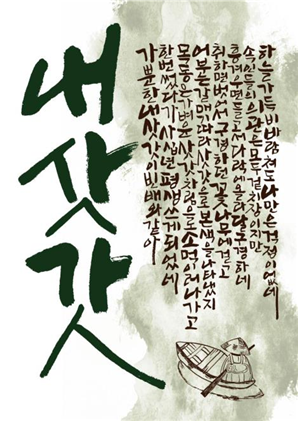 내 삿갓
가뿐한 내 삿갓이 빈 배와 같아
한번 썼다가 사십년 평생 쓰게 되었네
목동은 가벼운 삿갓 차림으로 소 먹이러 나가고
어부는 갈매기 따라 삿갓으로 본색을 나타냈지
취하면 벗어서 구경하던 꽃나무에 걸고
흥겨우면 들고서 다락에 올라 달구경하네
속인들의 의관은 모두 겉치장이지만
하늘 가득 비바람 쳐도 나만은 걱정이 없네